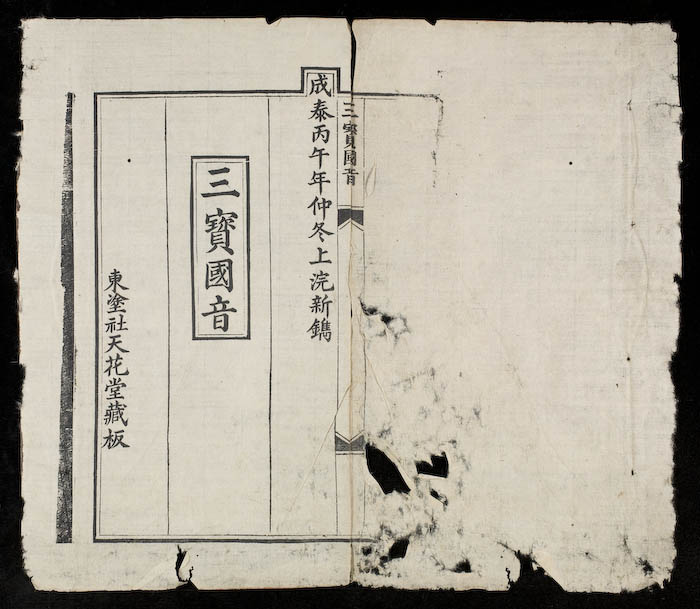 三寶國音
成泰丙午年仲冬上浣新鐫
三寶國音
東塗社天花堂藏板